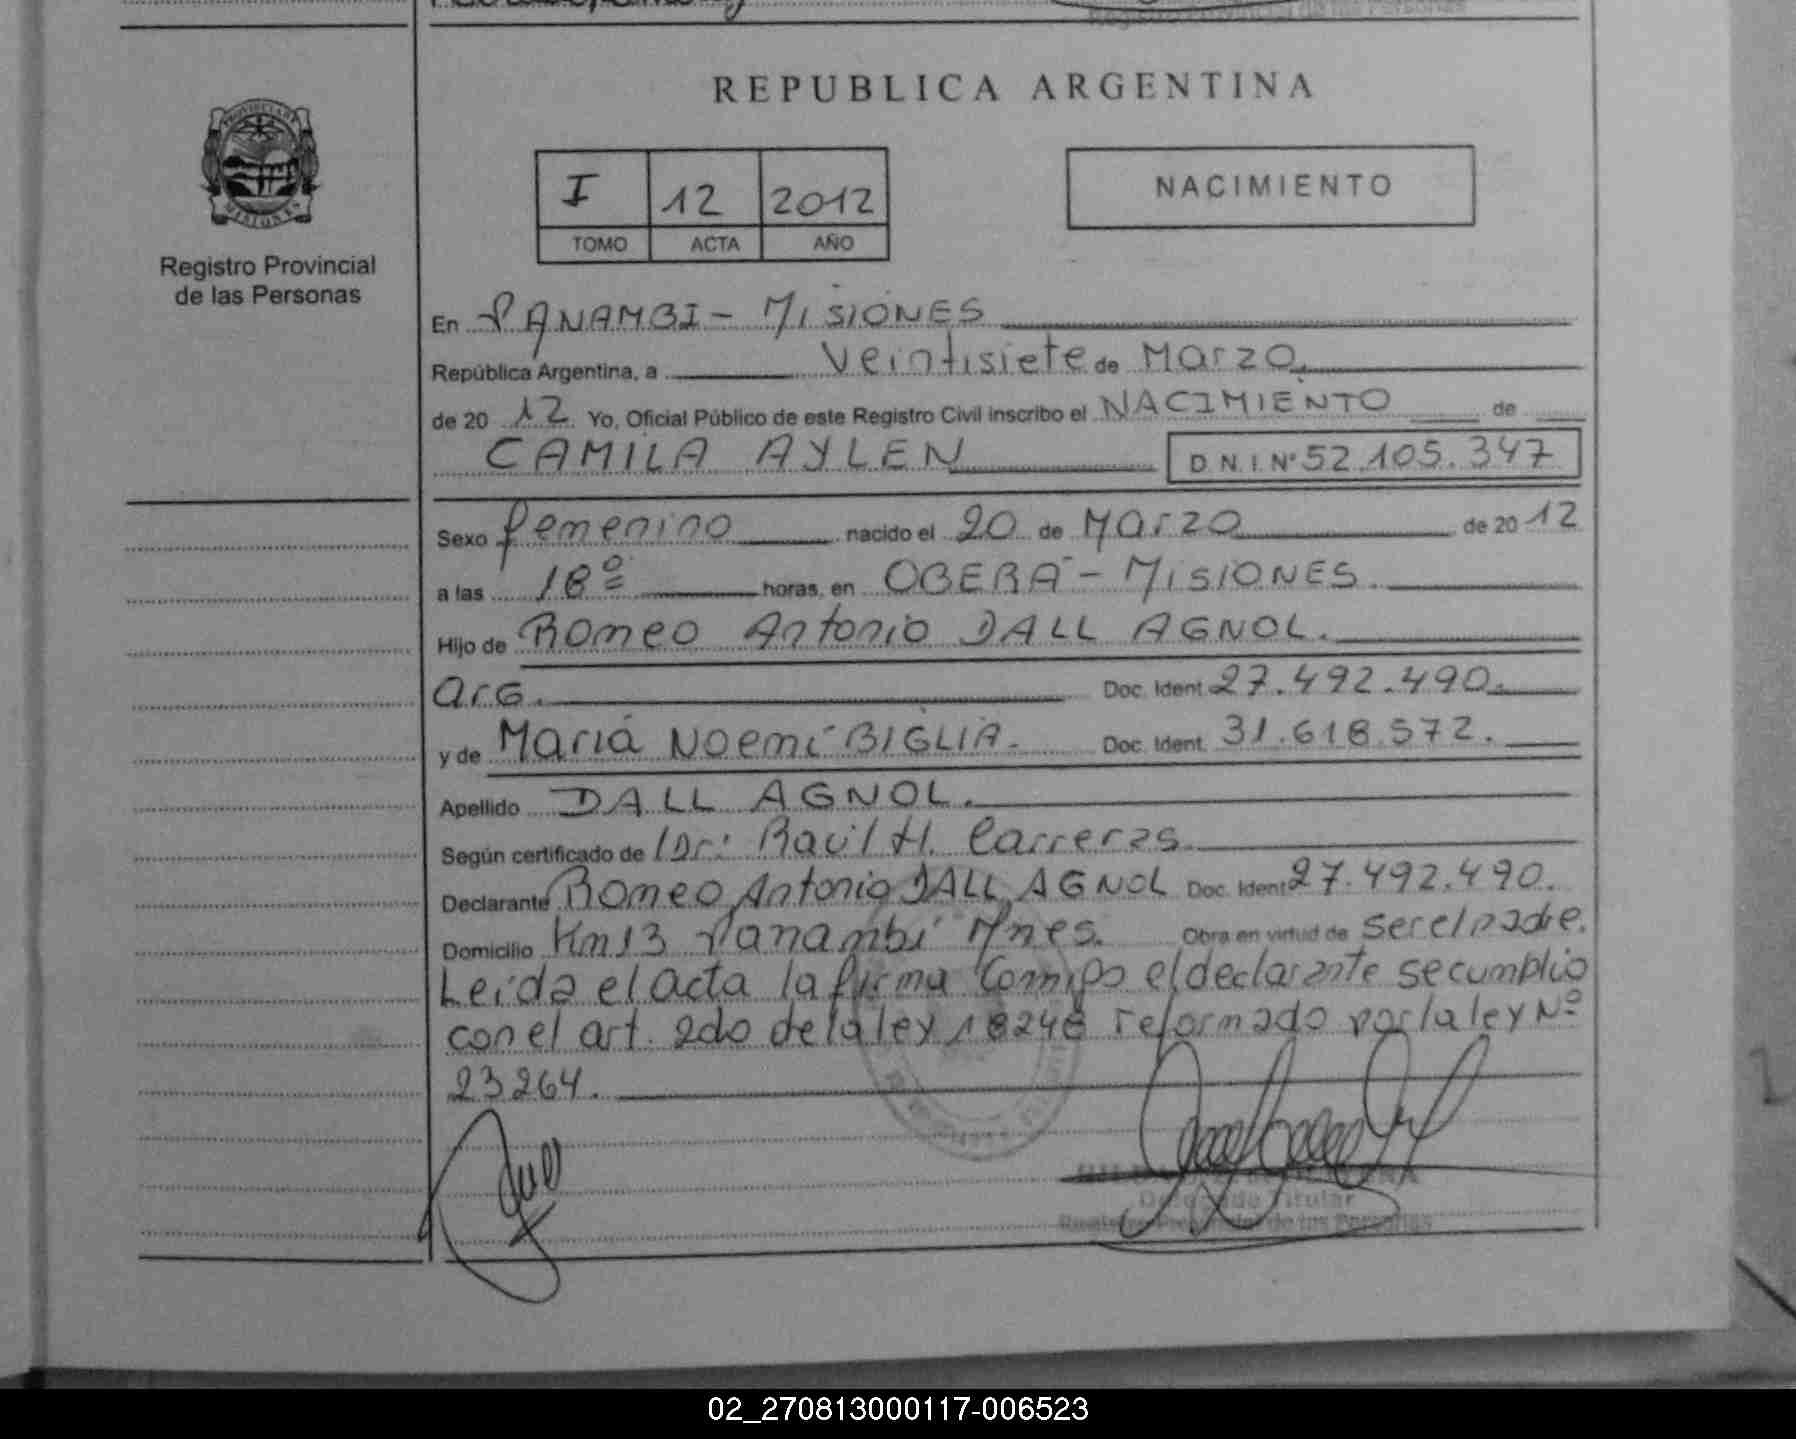 REPUBLICA ARGENTINA
PROVINCIA DE
MISIONES
Registro Provincial
de las Personas
I 12 2012
TOMO ACTA AÑO
NACIMIENTO
En PANAMBI - MISIONES
República Argentina, a Veintisiete de Marzo.
de 20 12 Yo, Oficial Público de este Registro Civil inscribo el NACIMIENTO de
CAMILA AYLEN D.N.I. Nº 52.105.347
Sexo femenino nacido el 20 de Marzo de 20 12
a las 18º horas, en OBERÁ - MISIONES
Hijo de Romeo Antonio DALL AGNOL.
arG. Doc. Ident. 27.492.490.
y de Maria Noemí BIGLIA. Doc. Ident. 31.618.572.
Apellido DALL AGNOL.
Según certificado de Dr: Raúl H. Carreras
Declarante Romeo Antonio DALL AGNOL Doc. Ident 27.492.490.
Domicilio Km 13 Panambí Mnes. Obra en virtud de ser el padre.
Leída el acta la firma conmigo el declarante se cumplio
con el art. 2do de la ley 18248 reformado por la ley Nº
23264.
Delegada Titular
Registro Provincial de las Personas
02_270813000117-006523